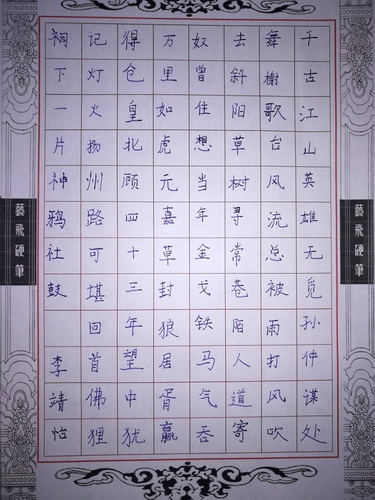 藝飛硬筆
千古江山英雄无觅孙仲谋处
舞榭歌台风流总被雨打风吹
去斜阳草树寻常巷陌人道寄
奴曾住想当年金戈铁马气吞
万里如虎元嘉草封狼居胥赢
得仓皇北顾四十三年望中犹
记灯火扬州路可堪回首佛狸
祠下一片神鸦社鼓 李靖怡
藝飛硬筆